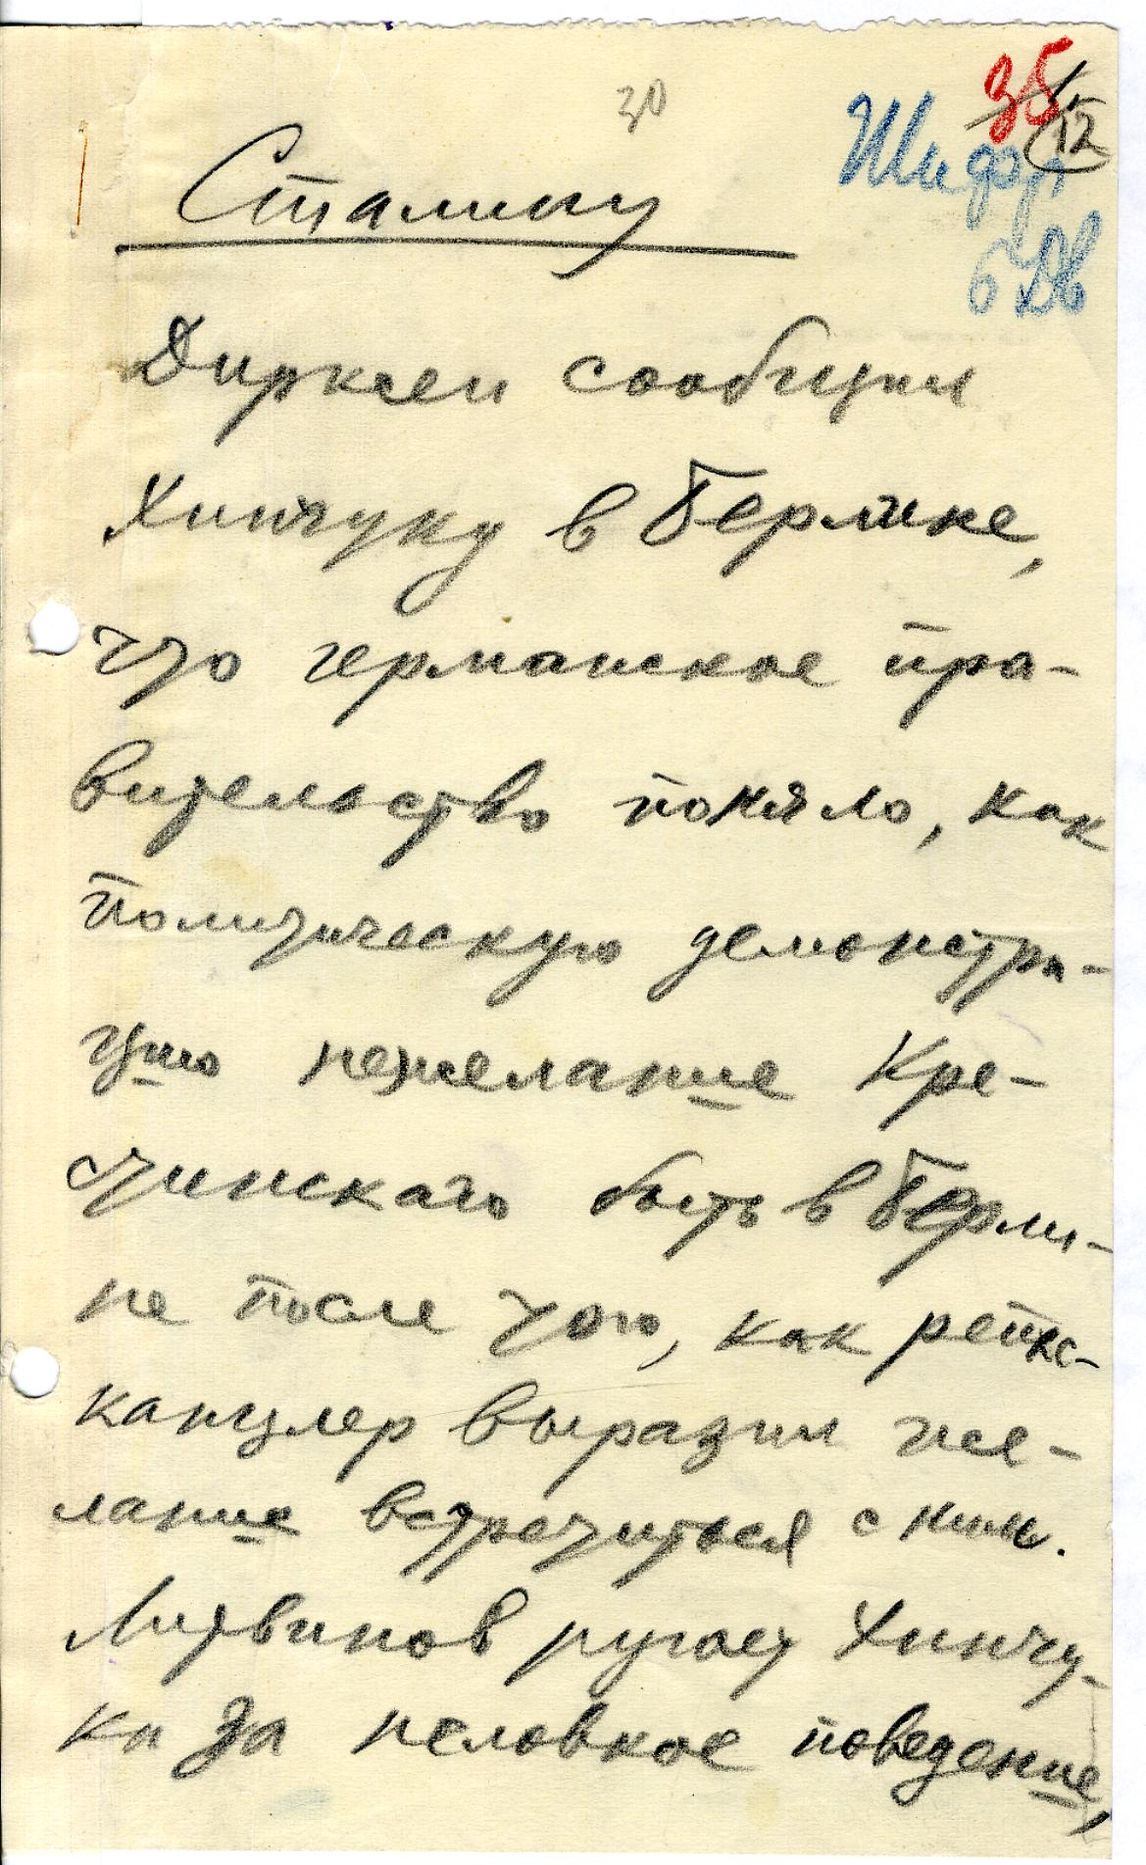 30
35
12
Шифр
Сталину
Дирксен сообщил
Хинчуку в Берлине,
что германское пра-
вительство поняло, как
политическую демонстра-
цию нежелание Кре-
стинского быть в Берли-
не после того, как рейхс-
канцлер выразил же-
лание встретиться с ним.
Литвинов ругает Хинчу-
ка за неловкое поведение,